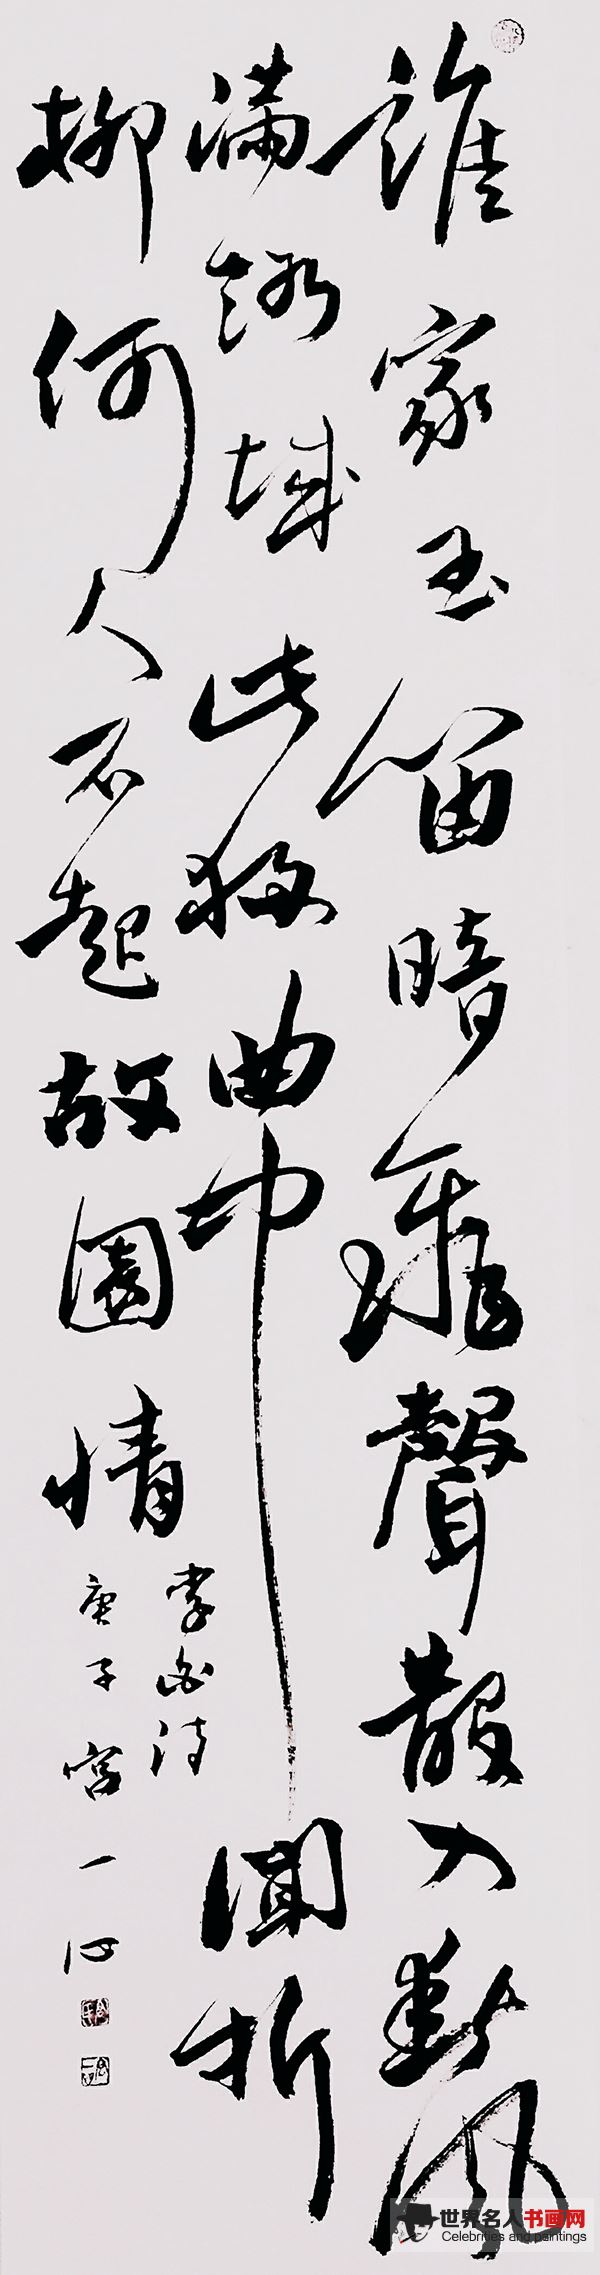 誰家玉笛暗飛聲散入春風
滿洛城此夜曲中聞折
柳何人不起故園情
李白詩
庚子宮一
世界名人书画网
Celebrities and paintings